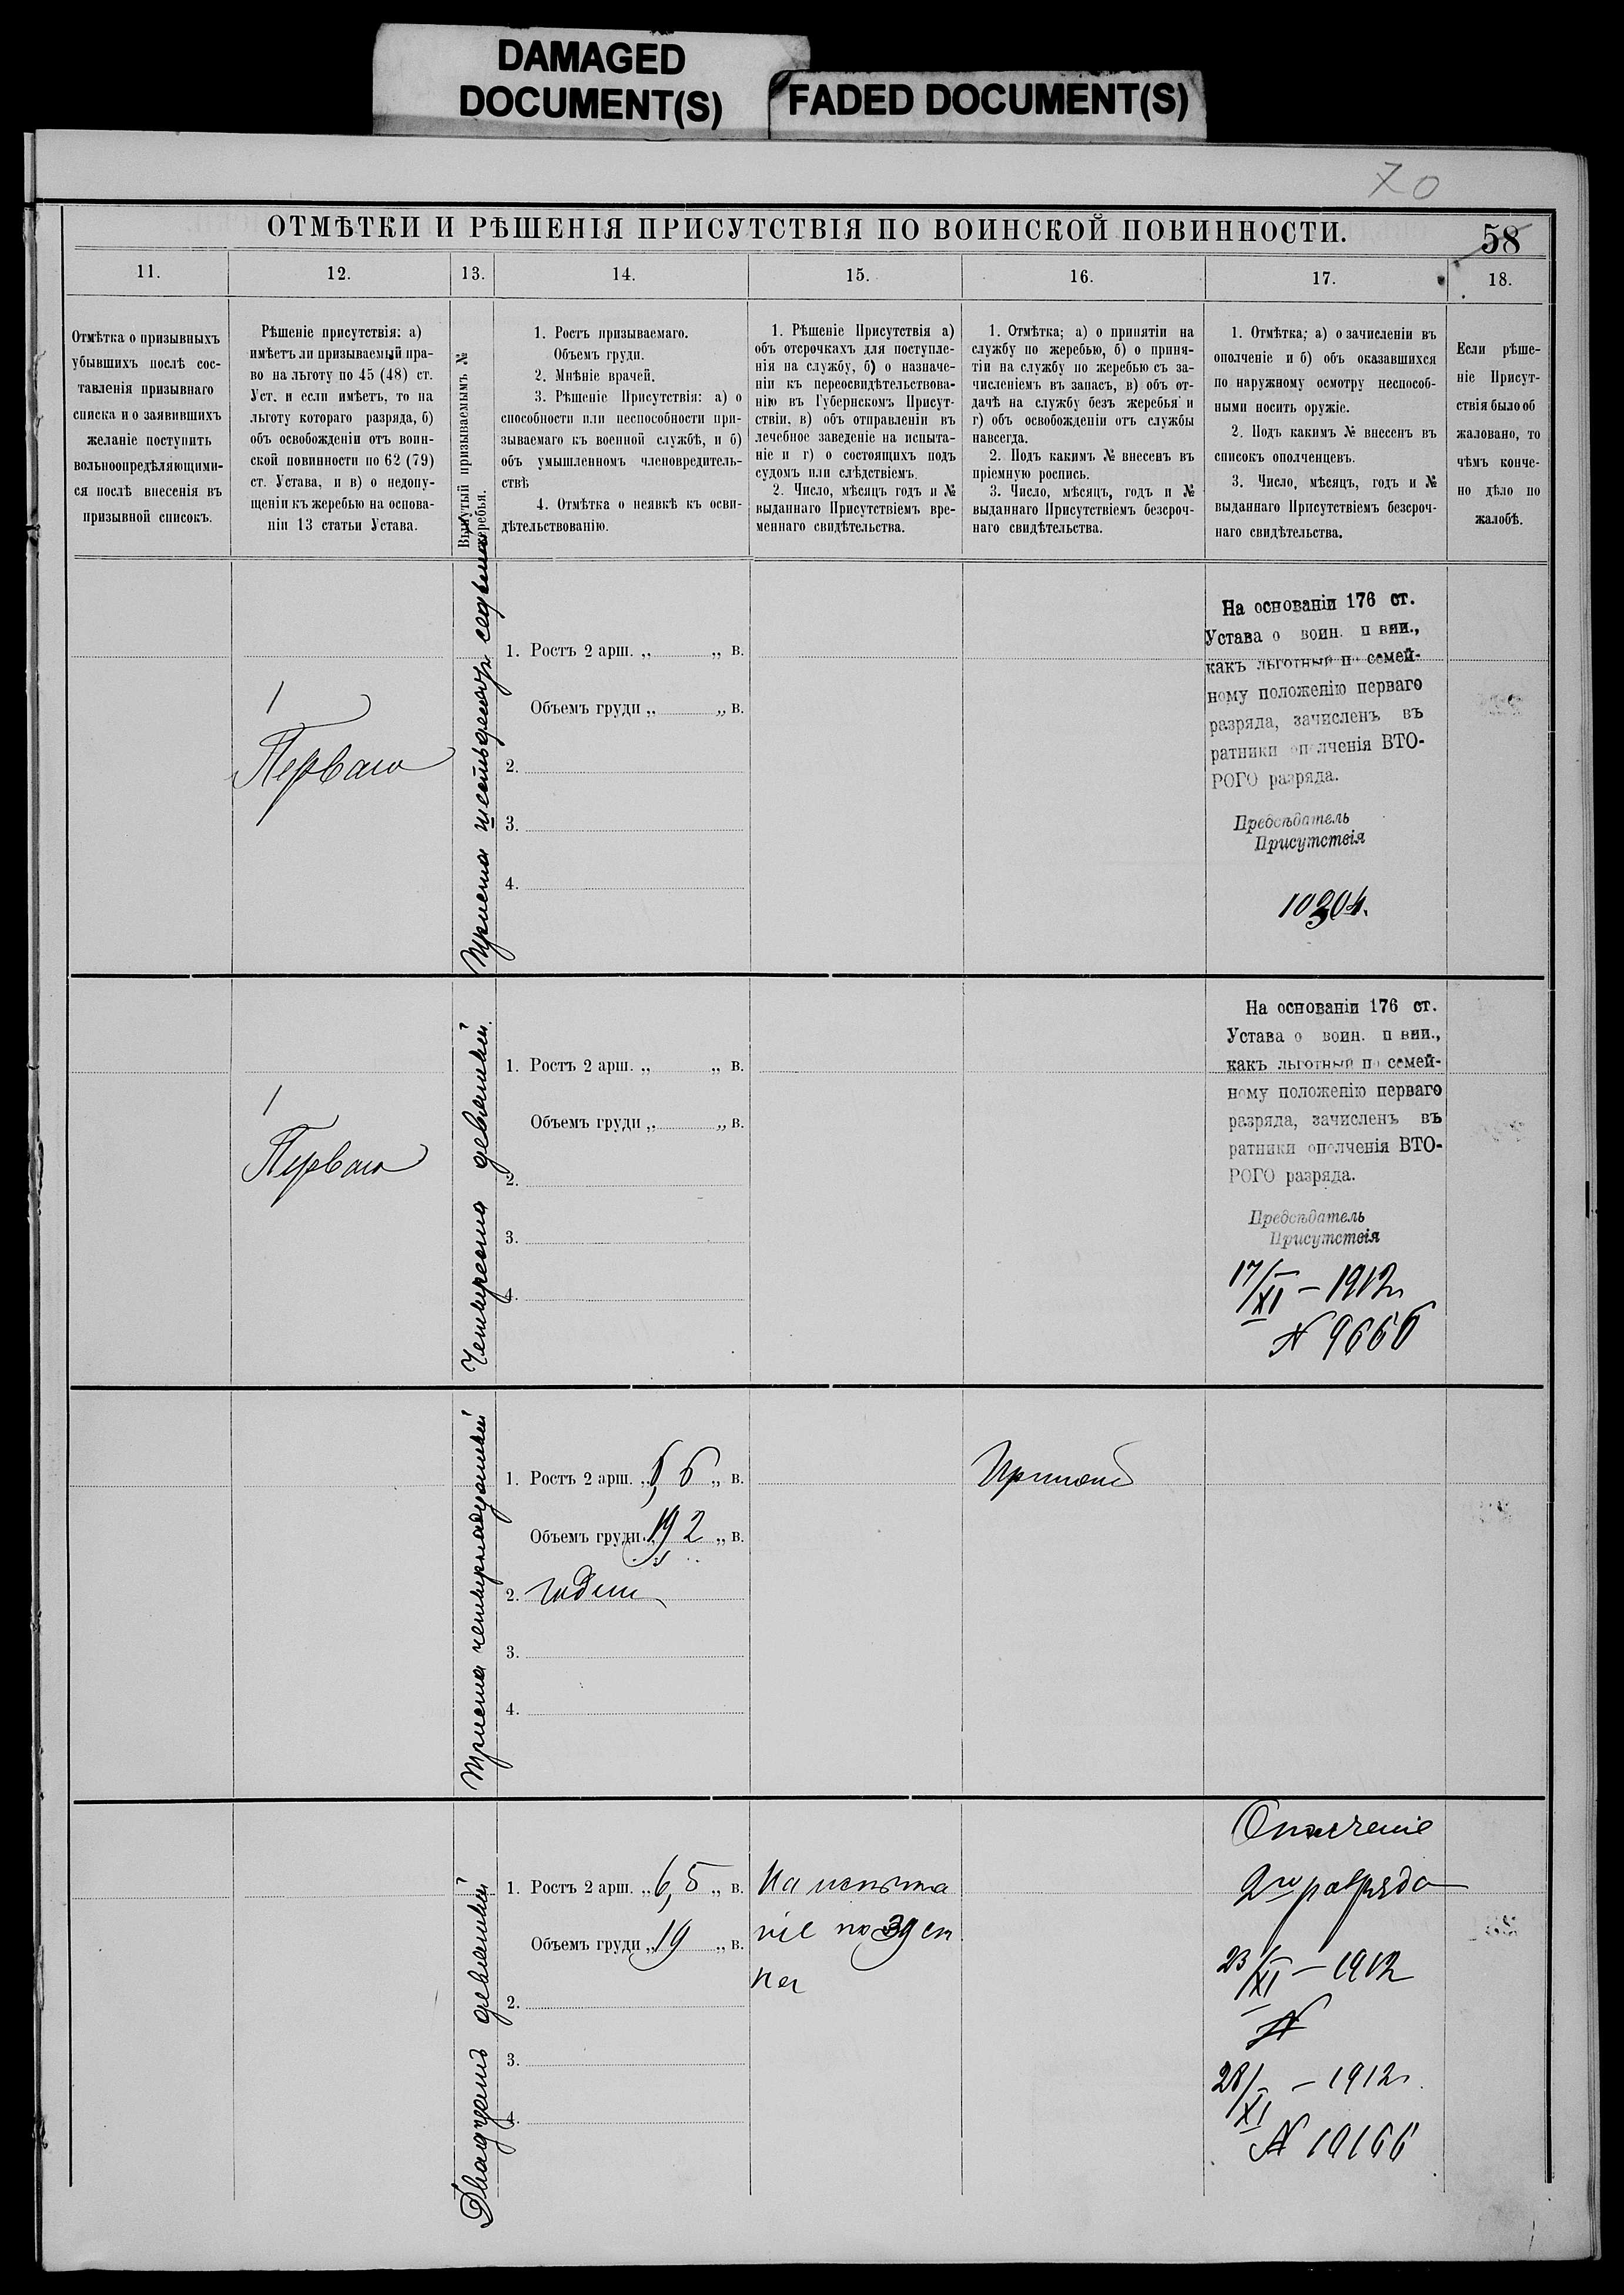 DAMAGED
DOCUMENT(S)
FADED DOCUMENT(S)
70
ОТМѢТКИ И РѢШЕНІЯ ПРИСУТСТВІЯ ПО ВОИНСКОЙ ПОВИННОСТИ.
58
11.
12.
13.
14.
15.
16.
17.
18.
Отмѣтка о призывныхъ
убывшихъ послѣ сос-
тавленія призывнаго
списка и о заявившихъ
желаніе поступить
вольноопредѣляющими-
ся послѣ внесенія въ
призывной списокъ.
Рѣшеніе присутствія: а)
имѣетъ ли призываемый пра-
во на льготу по 45 (48) ст.
Уст. и если имѣетъ, то на
льготу котораго разряда, б)
объ освобожденіи отъ воин-
ской повинности по 62 (79)
ст. Устава, и в) о недопу-
щеніи къ жеребью на основа-
ніи 13 статьи Устава.
Вынутый призываемымъ №
жеребья.
1. Ростъ призываемаго.
Объемъ груди.
2. Мнѣніе врачей.
3. Рѣшеніе Присутствія: а) о
способности или неспособности при-
зываемаго къ военной службѣ, и б)
объ умышленномъ членовредитель-
ствѣ
4. Отмѣтка о неявкѣ къ осви-
дѣтельствованію.
1. Рѣшеніе Присутствія а)
объ отсрочкахъ для поступле-
нія на службу, б) о назначе-
ніи къ переосвидѣтельствова-
нію въ Губернскомъ Присут-
ствіи, в) объ отправленіи въ
лечебное заведеніе на испыта-
ніе и г) о состоящихъ подъ
судомъ или слѣдствіемъ.
2. Число, мѣсяцъ годъ и №
выданнаго Присутствіемъ вре-
меннаго свидѣтельства.
1. Отмѣтка; а) о принятіи на
службу по жеребью, б) о приня-
тіи на службу по жеребью съ за-
численіемъ въ запасъ, в) объ от-
дачѣ на службу безъ жеребья и
г) объ освобожденіи отъ службы
навсегда.
2. Подъ какимъ № внесенъ въ
пріемную роспись.
3. Число, мѣсяцъ, годъ и №
выданнаго Присутствіемъ безсроч-
наго свидѣтельства.
1. Отмѣтка; а) о зачисленіи въ
ополченіе и б) объ оказавшихся
по наружному осмотру неспособ-
ными носить оружіе.
2. Подъ какимъ № внесенъ въ
списокъ ополченцевъ.
3. Число, мѣсяцъ, годъ и №
выданнаго Присутствіемъ безсроч-
наго свидѣтельства.
Если рѣше-
ніе Присут-
ствія было об
жаловано, то
чѣмъ конче-
но дѣло по
жалобѣ.
1
Перваго
Триста шестьдесятъ седьмой
1. Ростъ 2 арш. „ „ в.
Объемъ груди „ „ в.
2.
3.
4.
На основаніи 176 ст.
Устава о воин. п вин.,
какъ льготный по семей-
ному положенію перваго
разряда, зачисленъ въ
ратники ополченія ВТО-
РОГО разряда.
Предсѣдатель
Присутствія
10304.
1
Перваго
Четыреста девятый.
1. Ростъ 2 арш. „ „ в.
Объемъ груди „ „ в.
2.
3.
4.
На основаніи 176 ст.
Устава о воин. п вин.,
какъ льготный по семей-
ному положенію перваго
разряда, зачисленъ въ
ратники ополченія ВТО-
РОГО разряда.
Предсѣдатель
Присутствія
17/XI – 1912
N 9666
Триста четырнадцатый
1. Ростъ 2 арш. „ 6 „ в.
Объемъ груди „ 19 2 „ в.
2. годенъ
3.
4.
Принятъ
Двадцать девятый
1. Ростъ 2 арш. „ 6,5 „ в.
Объемъ груди „ 19 „ в.
2.
3.
4.
На испыта
ніе по 39 ст
Ополченіе
2го разряда
23/XI – 1912
N
28/XI – 1912
N 10166